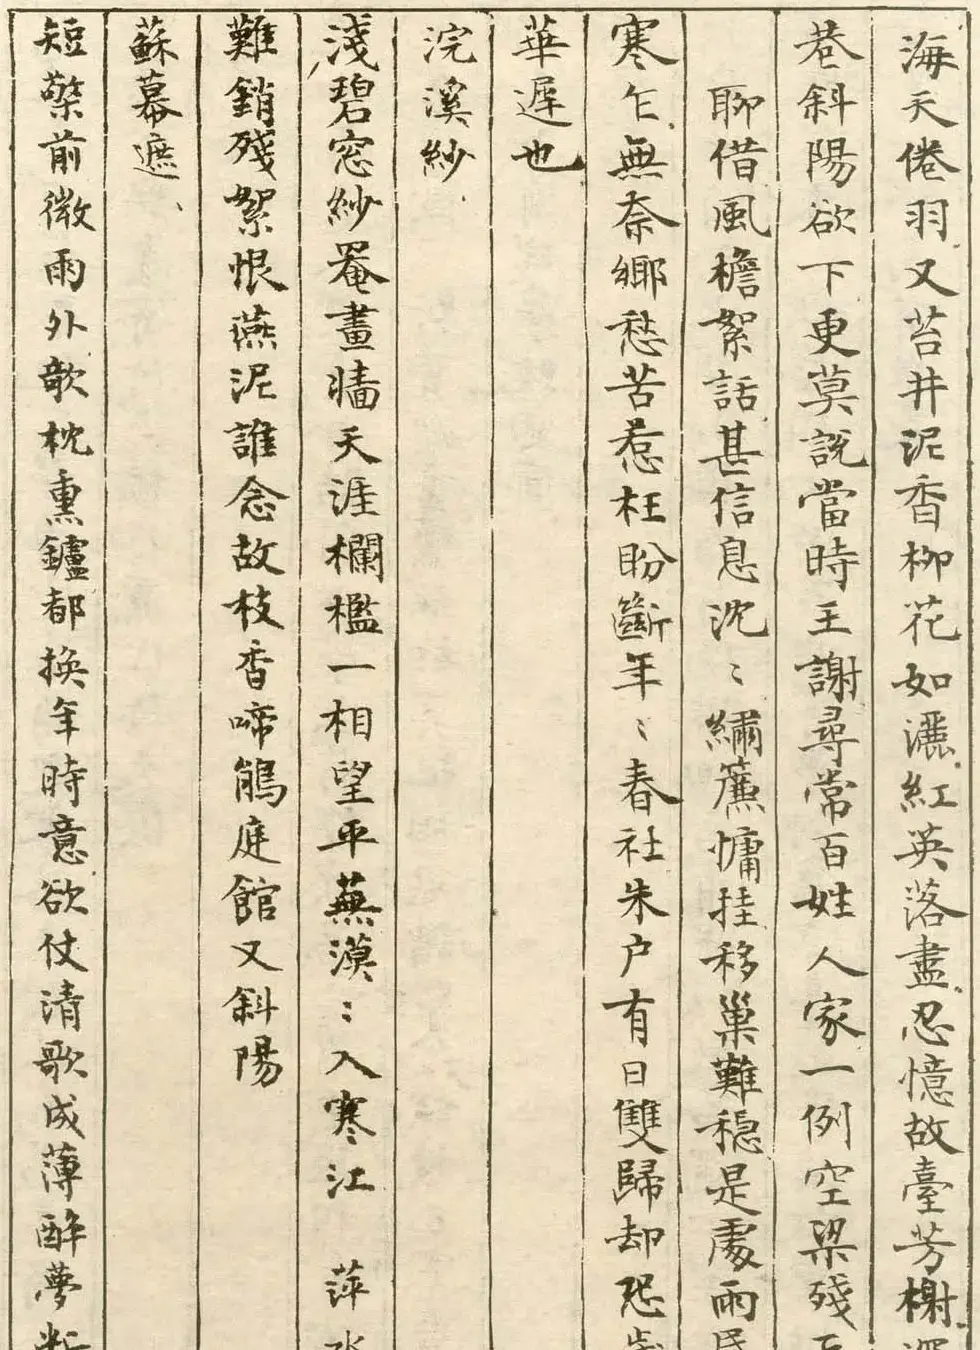 海天倦羽又苔井泥香柳花如灑紅英落盡忍憶故臺芳榭
巷斜陽欲下更莫説當時王謝尋常百姓人家一例空梁殘
聊借風檐絮話甚信息沈〻繡簾慵挂移巢難穏是處雨
寒乍無奈鄉愁苦惹枉盼斷年〻春社朱户有日雙歸却恐
華遲也
浣溪紗
淺碧窓紗罨畫牆天涯欄檻一相望平蕪漠〻入寒江 萍
難銷殘絮恨燕泥誰念故枝香啼鵑庭館又斜陽
蘇幕遮
短檠前微雨外欹枕熏鑪都換年時意欲仗清歌成薄醉夢